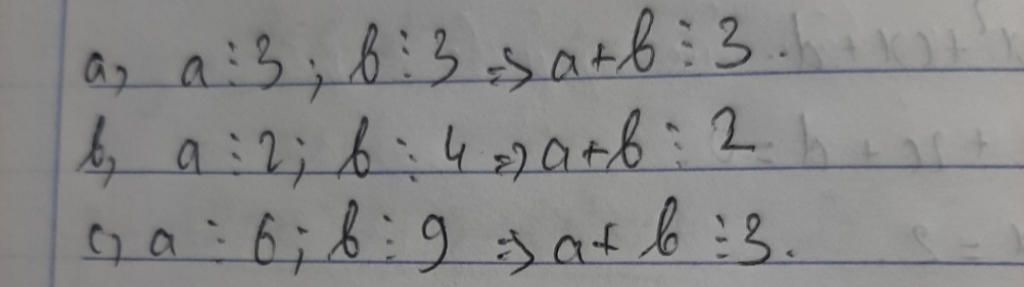 a, a ⋮ 3 ; b ⋮ 3 => a + b ⋮ 3.
b, a ⋮ 2; b ⋮ 4 => a + b ⋮ 2
c, a ⋮ 6; b ⋮ 9 => a + b ⋮ 3.